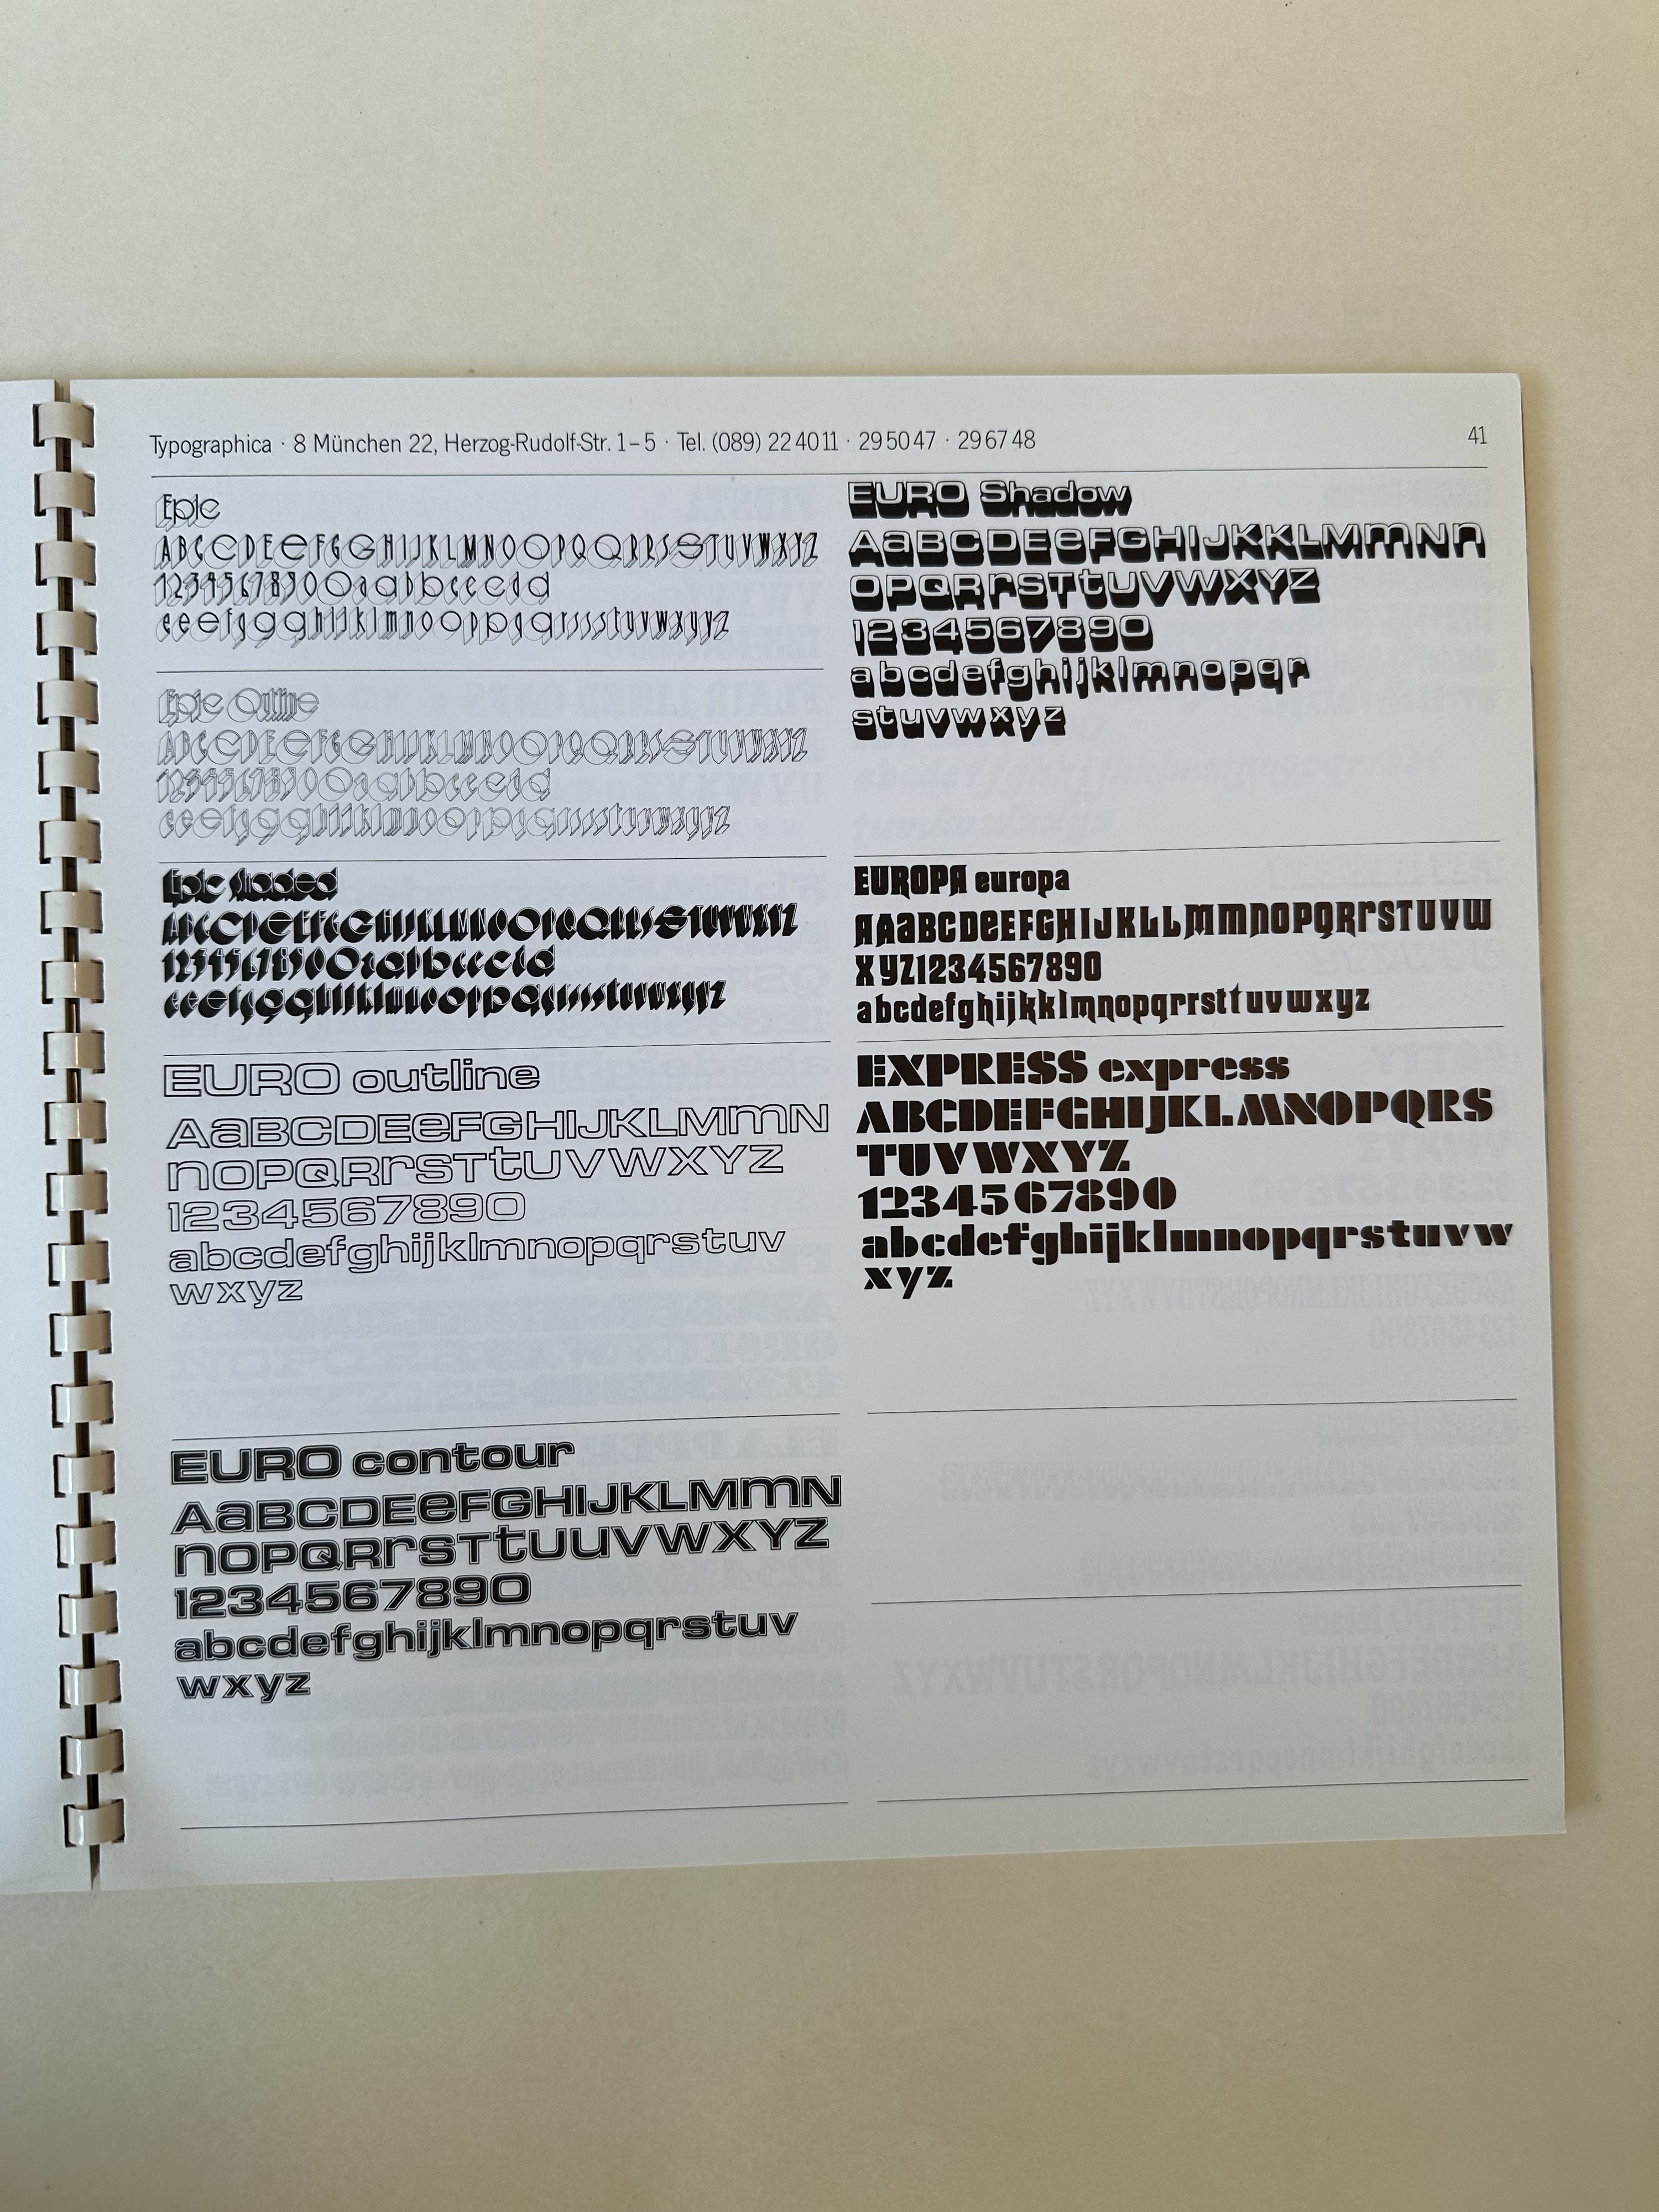 Typographica · 8 München 22, Herzog-Rudolf-Str. 1–5 · Tel. (089) 22 40 11 · 29 50 47 · 29 67 48
41
Epic
ABCCDEeFGGHIJKLMNOOPQQRRSSTUVWXYZ
1234567890Oaabbcccdd
eeefggghijklmnooppqqrssstuvwxyyz
Epic Outline
ABCCDEeFGGHIJKLMNOOPQQRRSSTUVWXYZ
1234567890Oaabbcccdd
eeefggghijklmnooppqqrssstuvwxyyz
Epic shaded
ABCCDEeFGGHIJKLMNOOPQQRRSSTUVWXYZ
1234567890Oaabbcccdd
eeefggghijklmnooppqqrssstuvwxyyz
EURO outline
AaBCDEeFGHIJKLMmN
nOPQRrSTtUVWXYZ
1234567890
abcdefghijklmnopqrstuv
wxyz
EURO contour
AaBCDEeFGHIJKLMmN
nOPQRrSTtUuVWXYZ
1234567890
abcdefghijklmnopqrstuv
wxyz
EURO Shadow
AaBCDEeFGHIJKKLMmNn
OPQRrSTtUVWXYZ
1234567890
abcdefghijklmnopqr
stuvwxyz
EUROPA europa
AAaBCDeEFGHIJKLLMmnOPQRrSTUVW
XYZ1234567890
abcdefghijkklmnopqrrsttuvwxyz
EXPRESS express
ABCDEFGHIJKLMNOPQRS
TUVWXYZ
1234567890
abcdefghijklmnopqrstuvw
xyz